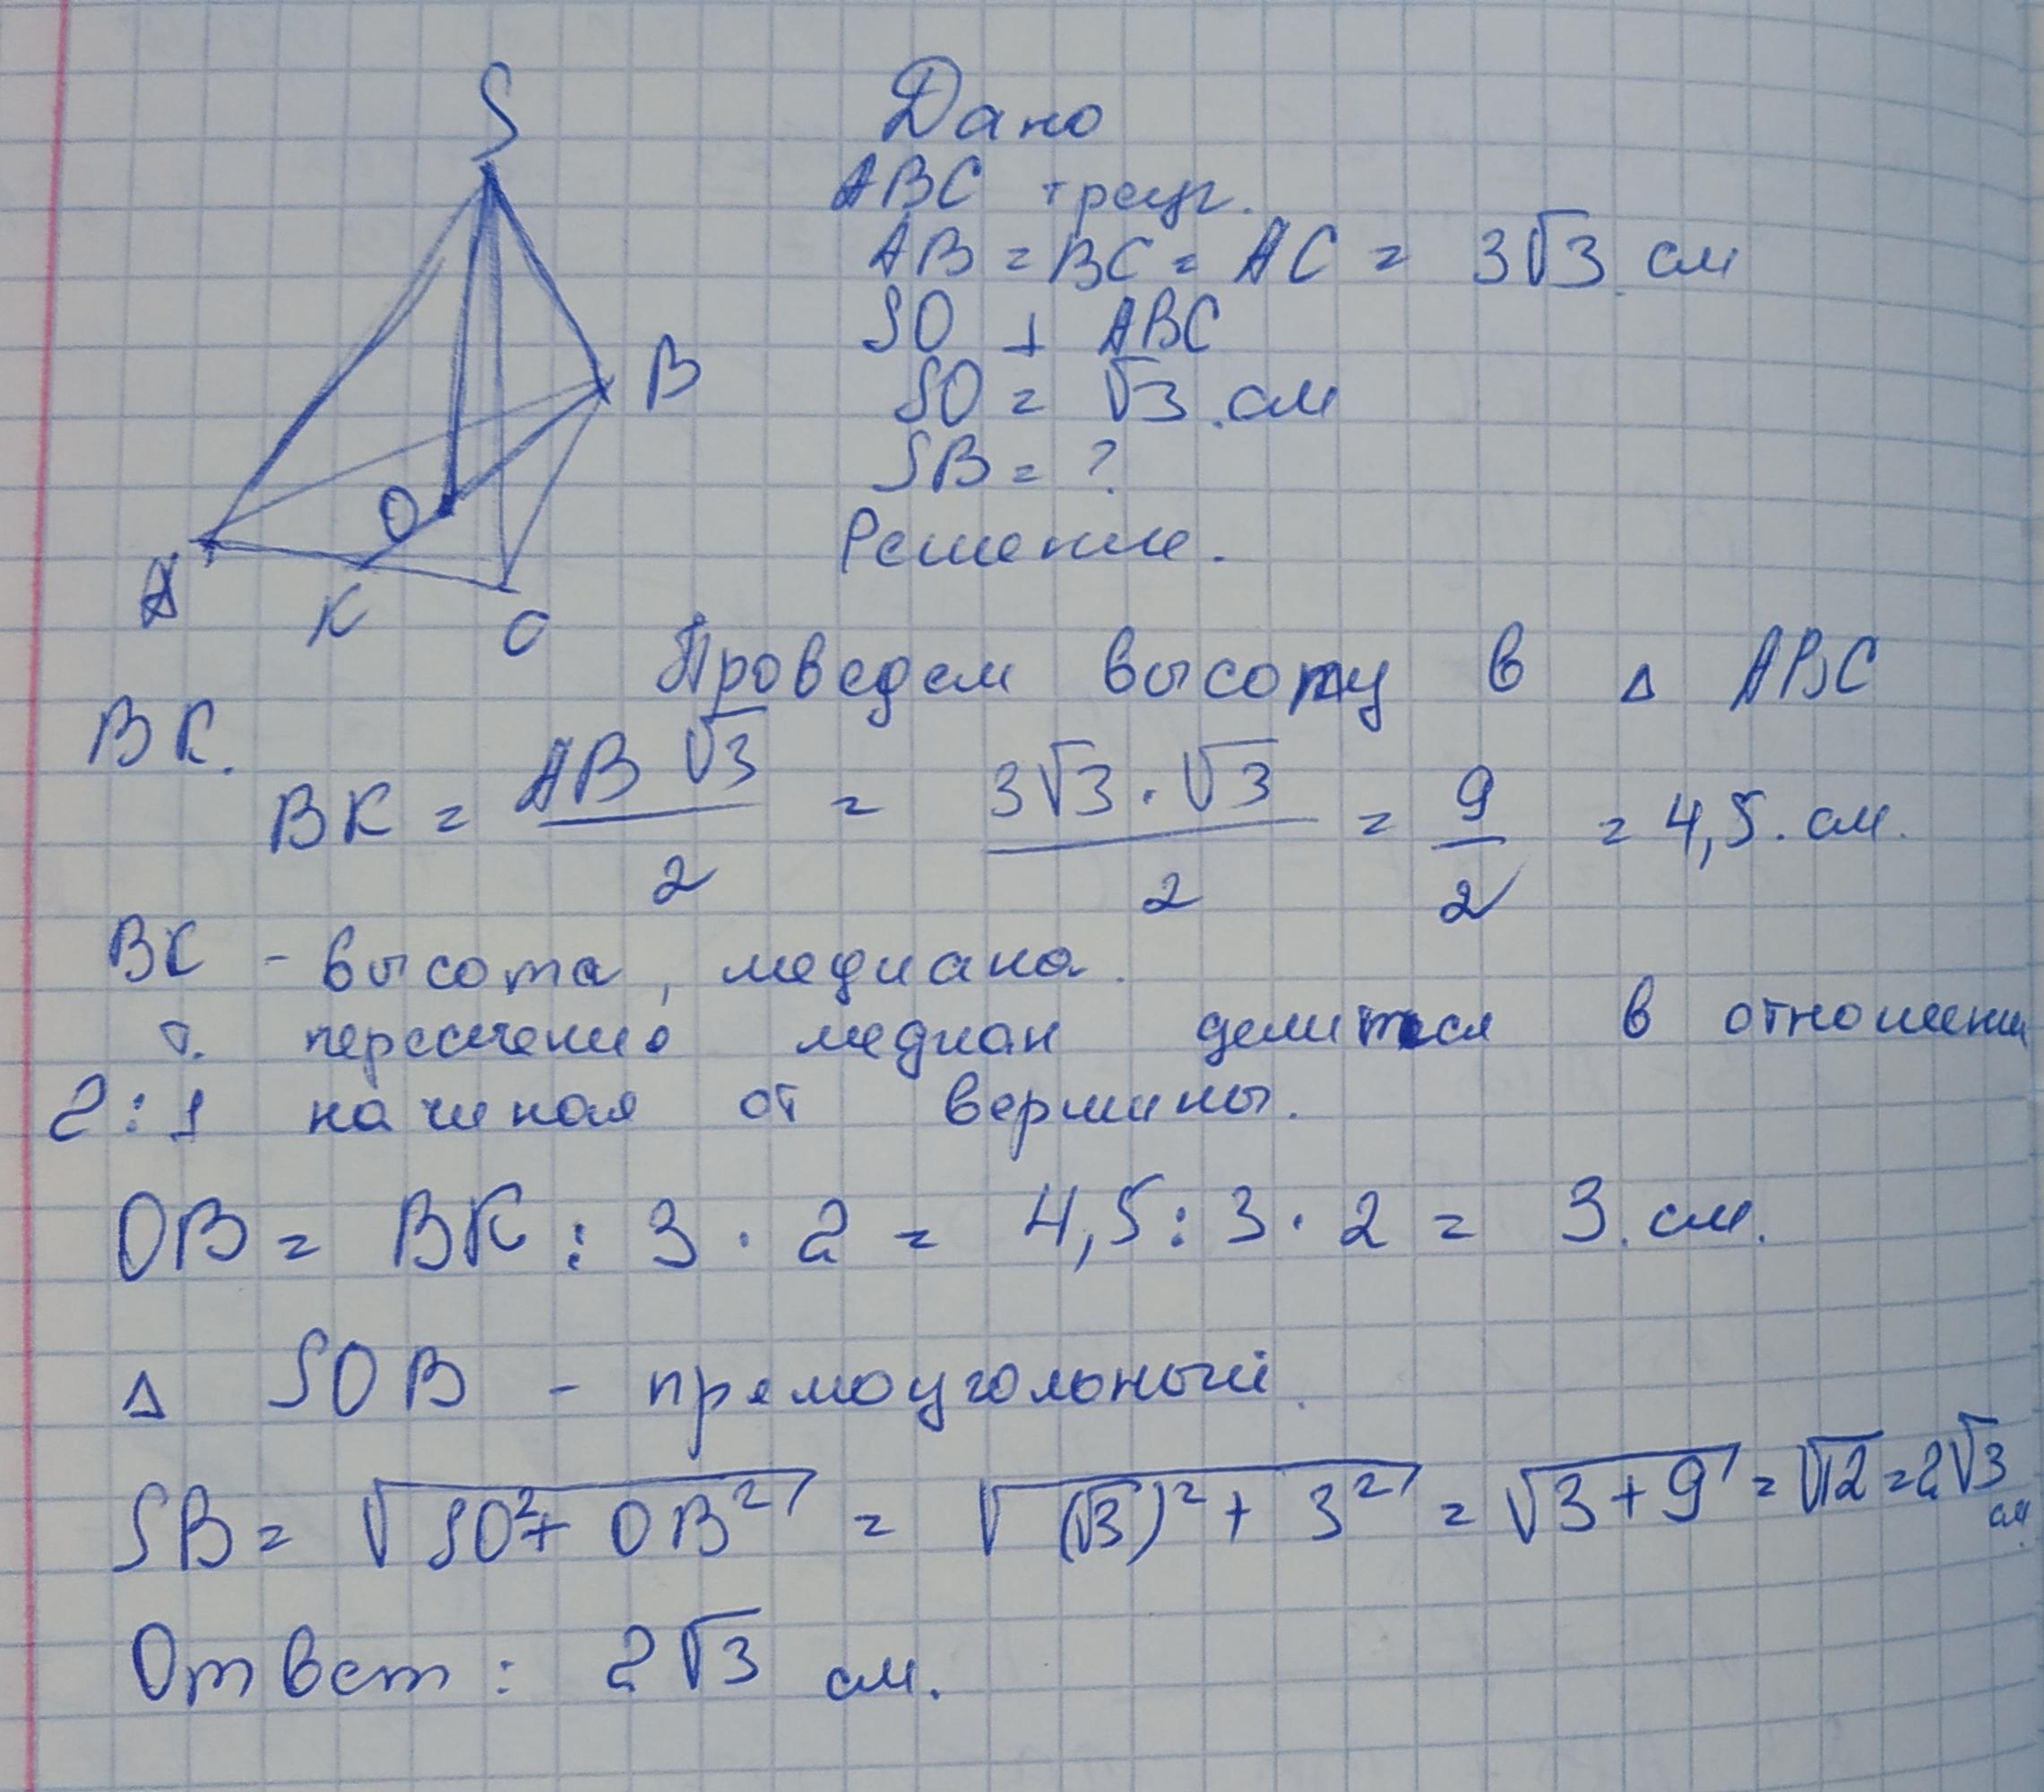 S
Дано
ABC треуг.
AB = BC = AC = 3√3 см
SO ⊥ ABC
B
SO = √3 см
SB = ?
O
Решение.
A
K
C
Проведем высоту в △ ABC
BK.
BK = AB √3 / 2 = 3√3 · √3 / 2 = 9 / 2 = 4,5 см.
BK - высота, медиана.
т. пересечение медиан делится в отношении
2:1 начиная от вершины.
OB = BK : 3 · 2 = 4,5 : 3 · 2 = 3 см.
△ SOB - прямоугольный.
SB = √(SO² + OB²) = √((√3)² + 3²) = √(3 + 9) = √12 = 2√3 см
Ответ: 2√3 см.